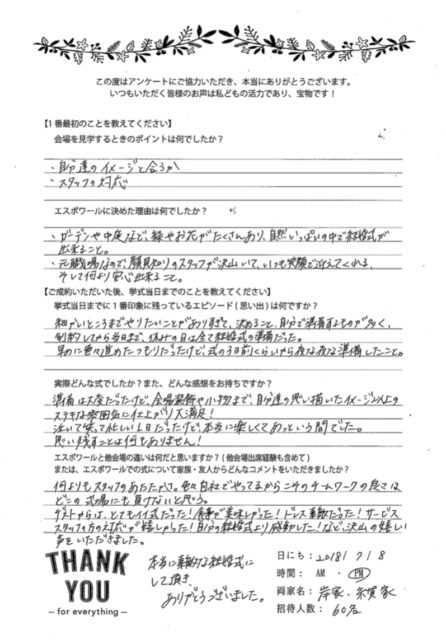 この度はアンケートにご協力いただき、本当にありがとうございます。
いつもいただく皆様のお声は私どもの活力であり、宝物です！
【1番最初のことを教えてください】
会場を見学するときのポイントは何でしたか？
・自分達のイメージと合うか
・スタッフの対応
エスポワールに決めた理由は何でしたか？
・ガーデンや中庭など、緑やお花がたくさんあり、自然いっぱいの中で結婚式が
出来ること。
・元職場なので、顔見知りのスタッフが沢山いて、いつも笑顔で迎えてくれる、
そして何より安心出来ること。
【ご成約いただいた後、挙式当日までのことを教えてください】
挙式当日までに1番印象に残っているエピソード(思い出)は何ですか？
細かいところまでやりたいことがありすぎて、決めること、自分で準備するものが多く、
契約してから当日まで、休みの日は全て結婚式の準備だった。
早めに色々進めたつもりだったけど、式の3日前くらいから夜な夜な準備したこと。
実際どんな式でしたか？また、どんな感想をお持ちですか？
準備は大変だったけど、会場装飾や小物まで、自分達の思い描いたイメージ以上の
ステキな雰囲気に仕上がり大満足！
泣いて笑って忙しい1日だったけど、本当に楽しくてあっという間でした。
思い残すことは何もありません！
エスポワールと他会場の違いは何だと思いますか？(他会場出席経験も含めて)
または、エスポワールでの式について家族・友人からどんなコメントをいただきましたか？
何よりもスタッフのあたたかさ。色々自社でやってるからこそのチームワークの良さは
どこの式場にも負けないと思う。
ゲストからは、とてもイイ式だった！食事が美味しかった！ドレス素敵だった！サービス
スタッフの方の対応が嬉しかった！自分の結婚式より感動した！など、沢山の嬉しい
声をいただきました。
THANK
YOU
– for everything –
本当に素敵な結婚式に
して頂き、
ありがとうございました。
日にち：2018/7/8
時間：AM・PM
両家名：岸家・糸賀家
招待人数：60名